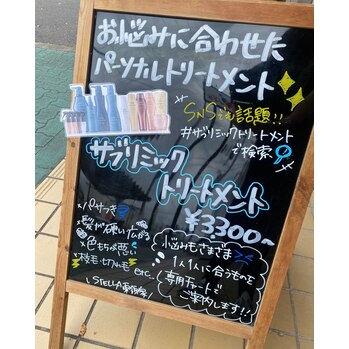 お悩みに合わせた
パーソナルトリートメント
SNSでも話題!!
#サブリミックトリートメント
で検索
サブリミック
トリートメント
¥3300~
・パサつき
・髪が硬い広がる
・色もちが悪い
・枝毛・切れ毛 etc..
悩みもさまざま
1人1人に合うものを
専用チャートで
ご案内します!!
\ STELLA